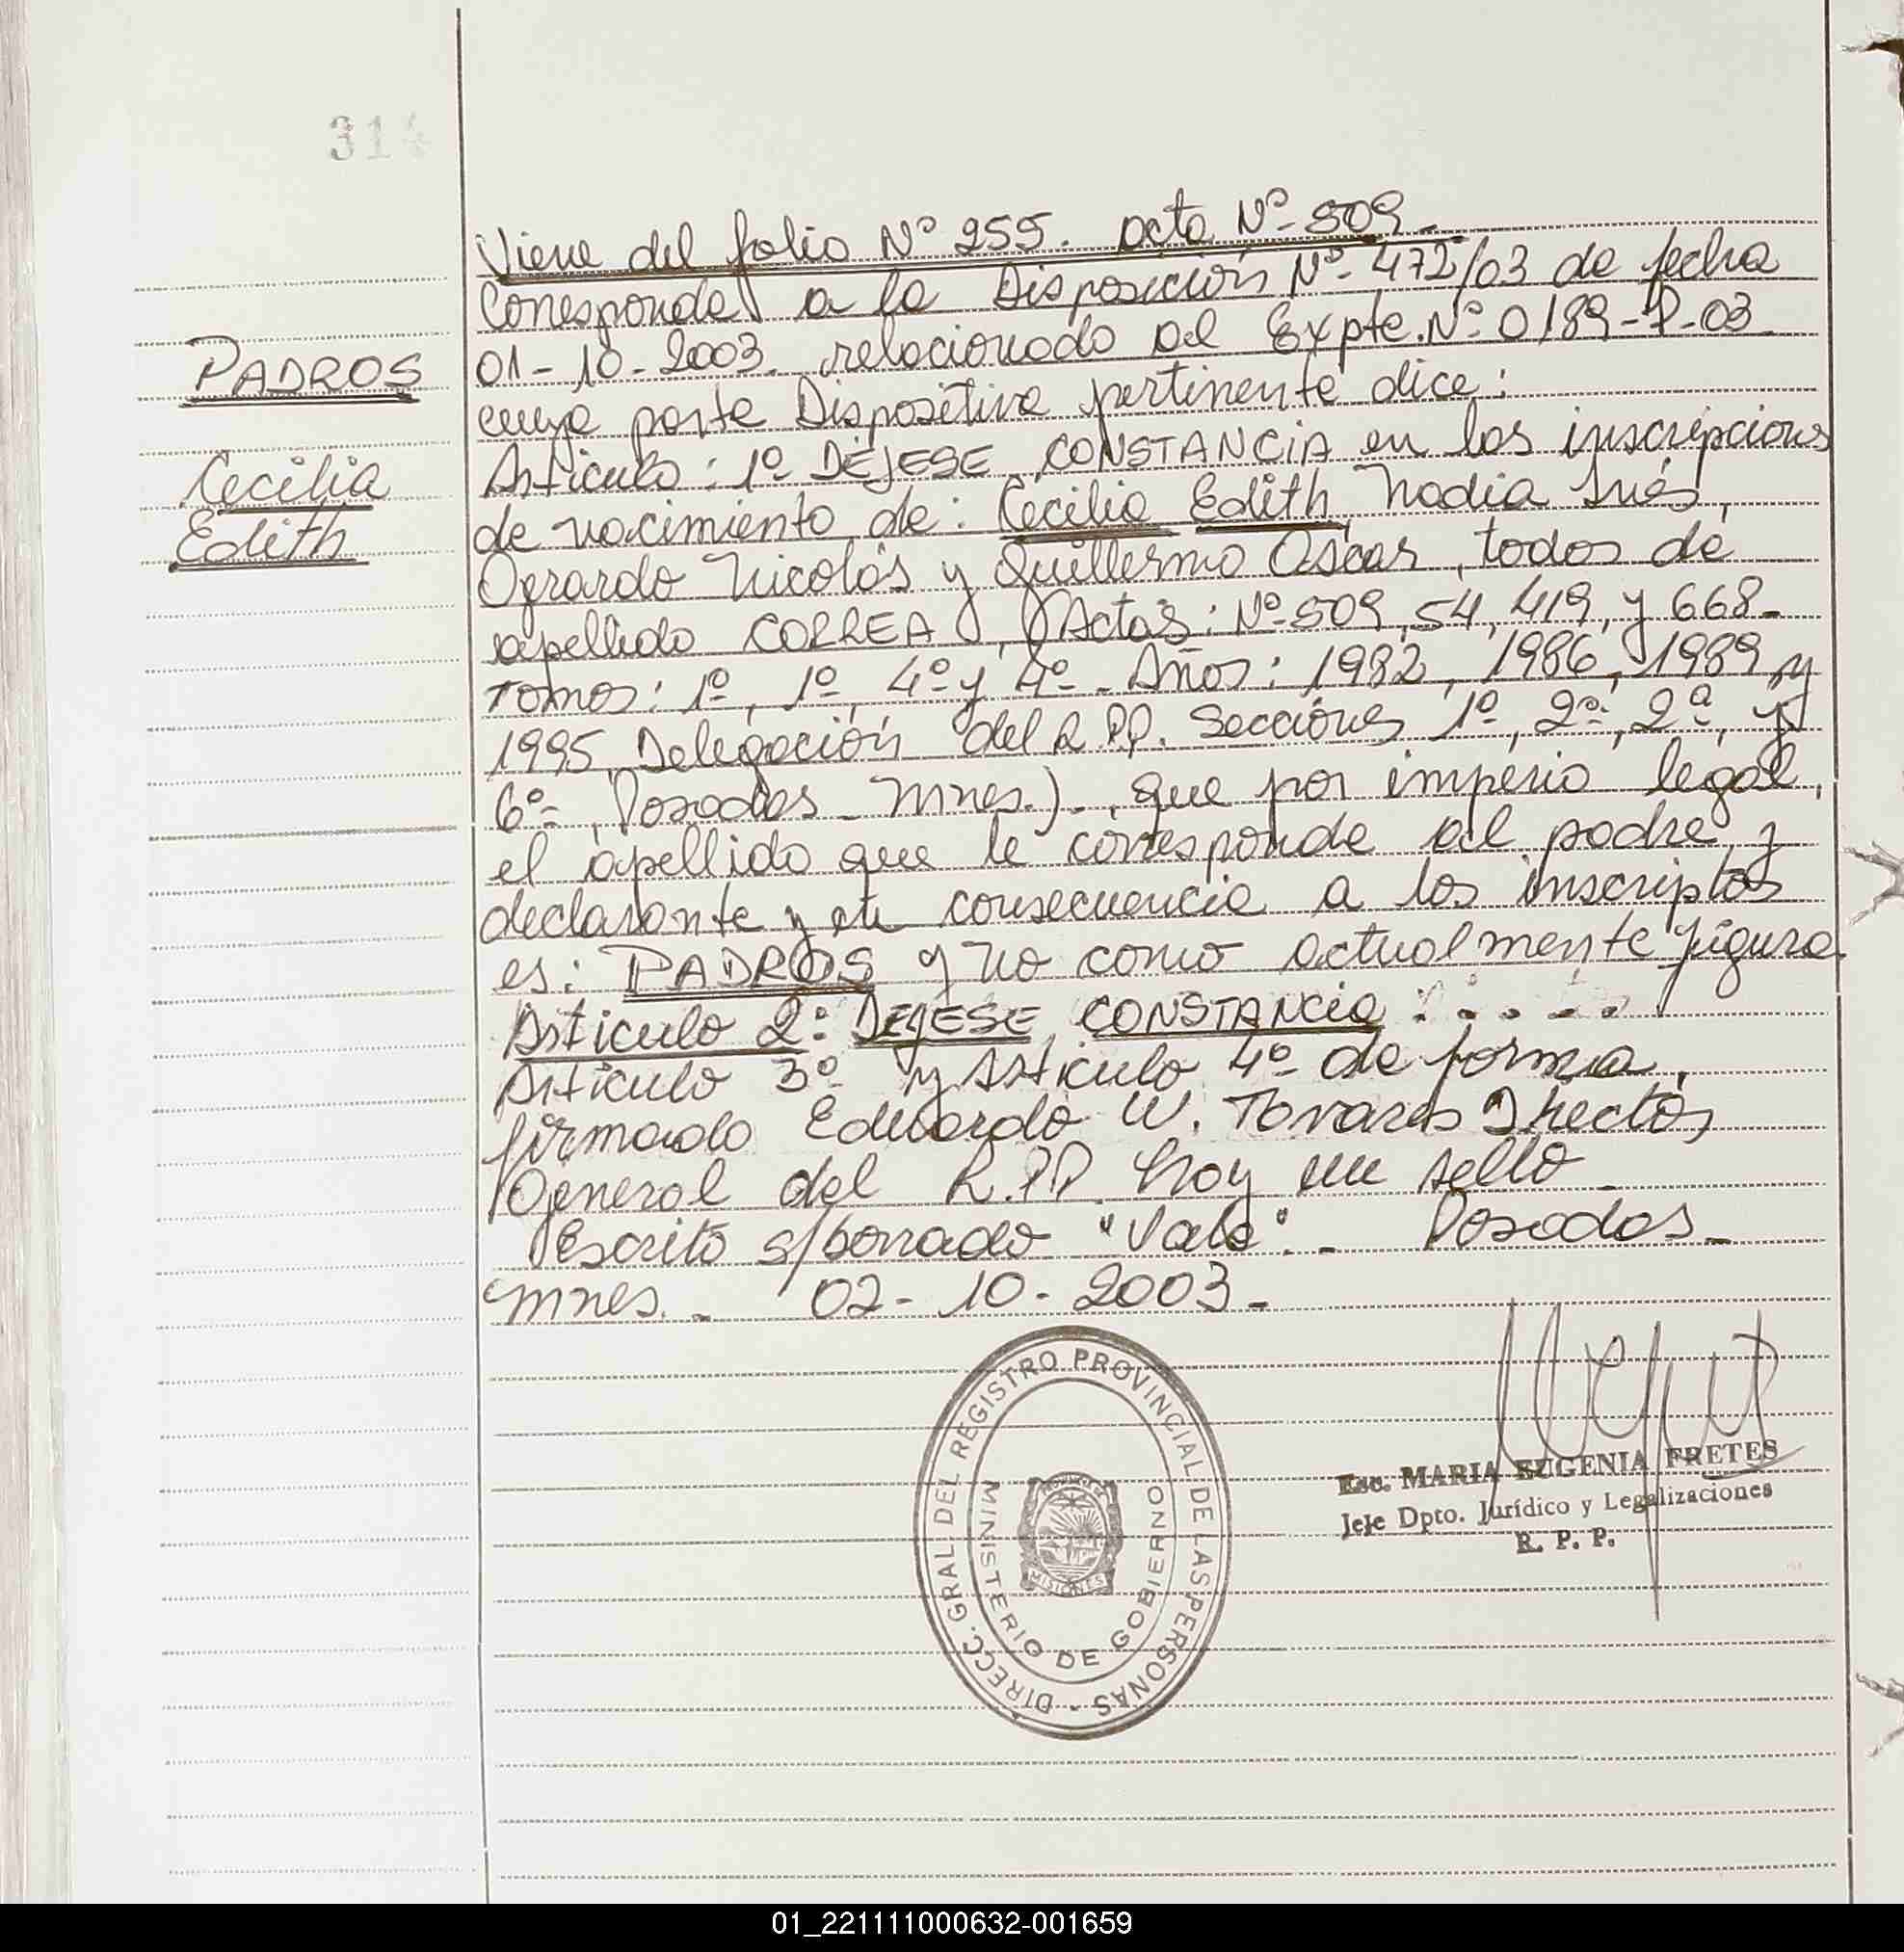 314
Viene del folio Nº 255. acta Nº 509.
PADROS
Cecilia
Edith
Corresponde a la Disposición Nº 472/03 de fecha
01-10-2003. relacionado al Expte. Nº 0189-P-03
cuya parte Dispositiva pertinente dice:
Articulo: 1º DÉJESE CONSTANCIA en las inscripciones
de nacimiento de: Cecilia Edith, Nadia Inés,
Gerardo Nicolás y Guillermo Oscar, todos de
apellido CORREA, (Actas: Nº 509, 54, 419, y 668-
Tomos: 1º, 1º, 4º y 4º - Años: 1982, 1986, 1989 y
1995, Delegación del R.P.P. Secciones 1º, 2º, 2ª, y
6º, Posadas - Mnes.)., que por imperio legal,
el apellido que le corresponde al padre y
declarante y en consecuencia a los inscriptos
es: PADROS y no como actualmente figura.
Articulo 2: DEJESE CONSTANCIA : . . . . .
Articulo 3º y Articulo 4º de forma,
firmado Eduardo W. Tavares Director
General del R.P.P. hay un sello -
Escrito s/borrado "Vale". - Posadas -
Mnes. - 02-10-2003 -
DIRECC. GRAL. DEL REGISTRO PROVINCIAL DE LAS PERSONAS -
MINISTERIO DE GOBIERNO
MISIONES
Esc. MARIA EUGENIA FRETES
Jefe Dpto. Jurídico y Legalizaciones
R. P. P.
01_221111000632-001659